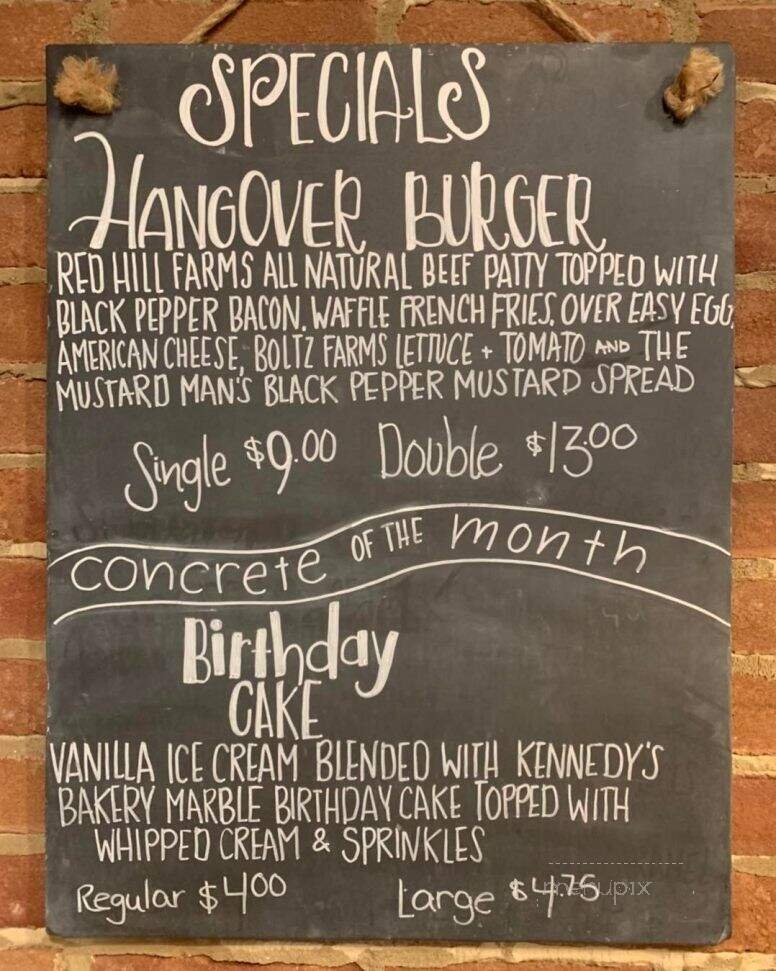 SPECIALS
HANGOVER BURGER
RED HILL FARMS ALL NATURAL BEEF PATTY TOPPED WITH
BLACK PEPPER BACON, WAFFLE FRENCH FRIES, OVER EASY EGG,
AMERICAN CHEESE, BOLTZ FARMS LETTUCE + TOMATO AND THE
MUSTARD MAN'S BLACK PEPPER MUSTARD SPREAD
Single $9.00 Double $13.00
concrete OF THE month
Birthday
CAKE
VANILLA ICE CREAM BLENDED WITH KENNEDY'S
BAKERY MARBLE BIRTHDAY CAKE TOPPED WITH
WHIPPED CREAM & SPRINKLES
Regular $4.00 Large $4.75
menupix